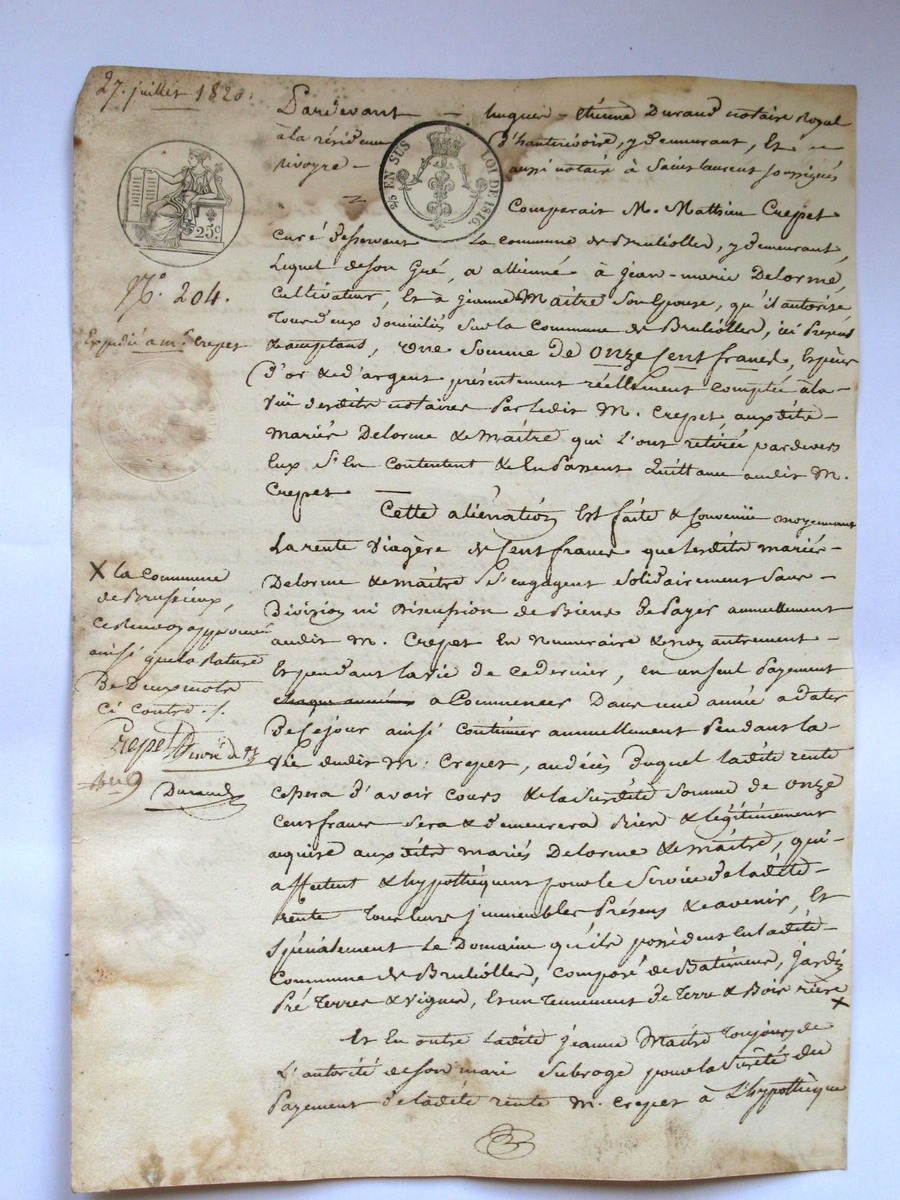 27. juillet 1820.
Pardevant - hugues - étienne Durand notaire Royal
à la résidence d'hauterivoire, y demeurant, Et
rivoyre - aussi notaire à Saint laurent soussignés
% EN SUS LOI DE 1816.
25c
Comparait M. Mathieu Crepet
Curé desservant La commune de Brulliolles, y demeurant,
Lequel de son Gré, a alliéné à jean-marie Delorme,
N.o 204.
Cultivateur, Et à jeanne Maître Son Epouse, qu'il autorise
Tous deux domiciliés Sur la Commune de Brulliolles, ici Présens
Expédié a mr. Crepet
& acceptans, une Somme de onze Cent francs, Espèces
D'or & d'argent présentement réellement comptée à la -
Vüe desdits notaires Par ledit M. Crepet, aux dits -
Mariés Delorme & Maître qui L'ont retirée pardevers
Eux S'En Contentent & En Passent Quittance audit M.
Crepet
Cette aliénation Est faite & Convenüe moyennant
La rente Viagère de Cent francs que lesdits mariés -
Delorme & maître S'Engagent Solidairement Sans -
Division ni Discussion de Biens de Payer annuellement
audit M. Crepet En Numéraire & non autrement -
Et pendant la vie de ce dernier, en un seul Payement
chaque année a Commencer Dans une année a dater
De Ce jour ainsi Continuer annuellement Pendant la -
Vie dudit M. Crepet, au décès Duquel ladite rente
cessera d'avoir Cours & la Susdite Somme de onze
Cent francs Sera & demeurera Bien & légitimément
acquise aux dits mariés Delorme & maître, qui -
affectent & hypothèquent pour le Service de ladite -
rente Tous leurs immeubles Présens & avenir, Et
Spécialement Le Domaine qu'ils possèdent En ladite -
Commune de Brulliolles, Composé de Batimens, Jardin
Pré Terres & Vignes, Et un Tennement de Terre & Bois rière X
X la Commune
de Brussieux,
ce Renvoy approuvé
ainsi que la Rature
De Deux mots
Ci Contre ./.
Crepet
Durand
Et En outre Ladite Jeanne Maître Toujours de
L'autorité de Son mari Subroge pour la Sûreté du
Payement De ladite rente M. Crepet à L'hypothèque